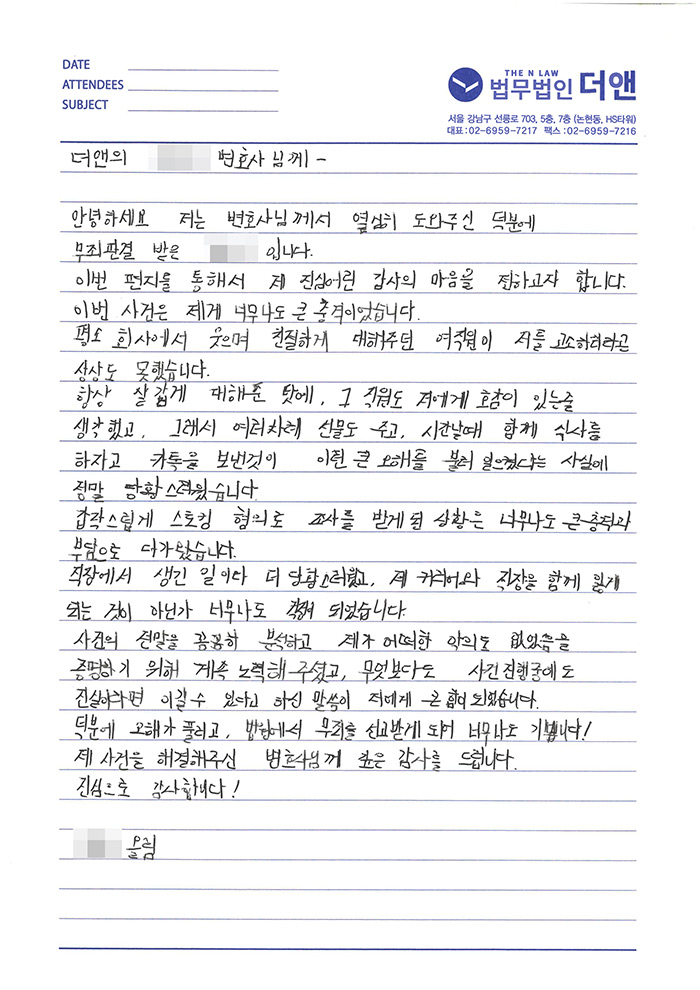 DATE
ATTENDEES
SUBJECT
THE N LAW
법무법인 더앤
서울 강남구 선릉로 703, 5층, 7층 (논현동, HS타워)
대표:02-6959-7217 팩스:02-6959-7216
더앤의 변호사님께 -
안녕하세요 저는 변호사님께서 열심히 도와주신 덕분에
무죄판결 받은 입니다.
이번 편지를 통해서 제 진심어린 감사의 마음을 전하고자 합니다.
이번 사건은 제게 너무나도 큰 충격이었습니다.
평소 회사에서 웃으며 친절하게 대해주던 여직원이 저를 고소하리라고
상상도 못했습니다.
항상 살갑게 대해준 탓에, 그 직원도 저에게 호감이 있는줄
생각했고, 그래서 여러차례 선물도 주고, 시간날때 함께 식사를
하자고 카톡을 보낸것이 이런 큰 오해를 불러 일으켰다는 사실에
정말 당황스러웠습니다
갑작스럽게 스토킹 혐의로 조사를 받게 된 상황은 너무나도 큰 충격과
부담으로 다가왔습니다.
직장에서 생긴 일이다 더 당황스러웠고, 제 커리어와 직장을 함께 잃게
되는 것이 아닌가 너무나도 걱정 되었습니다.
사건의 전말을 꼼꼼히 분석하고 제가 어떠한 악의도 없었음을
증명하기 위해 계속 노력해 주셨고, 무엇보다도 사건 진행중에도
진실하다면 이길 수 있다고 하신 말씀이 저에게 큰 힘이 되었습니다.
덕분에 오해가 풀리고, 법정에서 무죄를 선고받게 되어 너무나도 기쁩니다!
제 사건을 해결해주신 변호사님께 깊은 감사를 드립니다.
진심으로 감사합니다!
올림